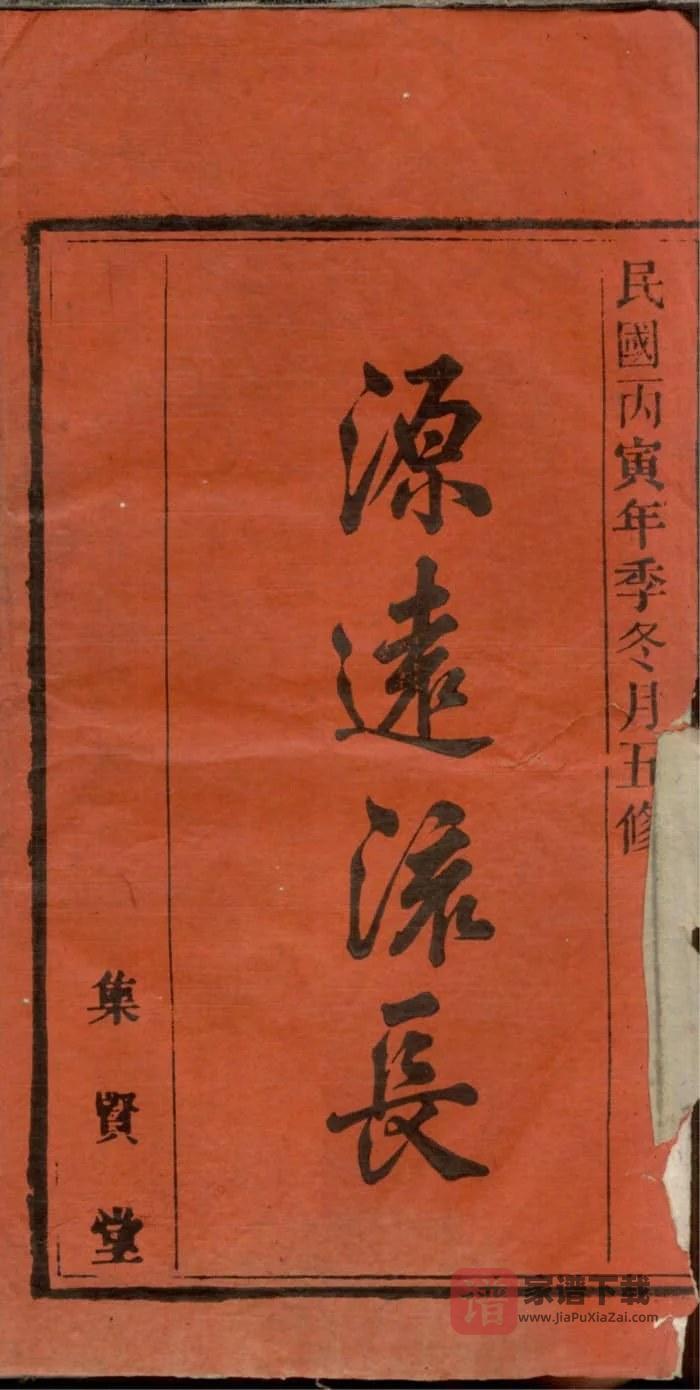 民國丙寅年季冬月五修
源遠流長
集賢堂
谱 家谱下载
www.JiaPuXiaZai.com